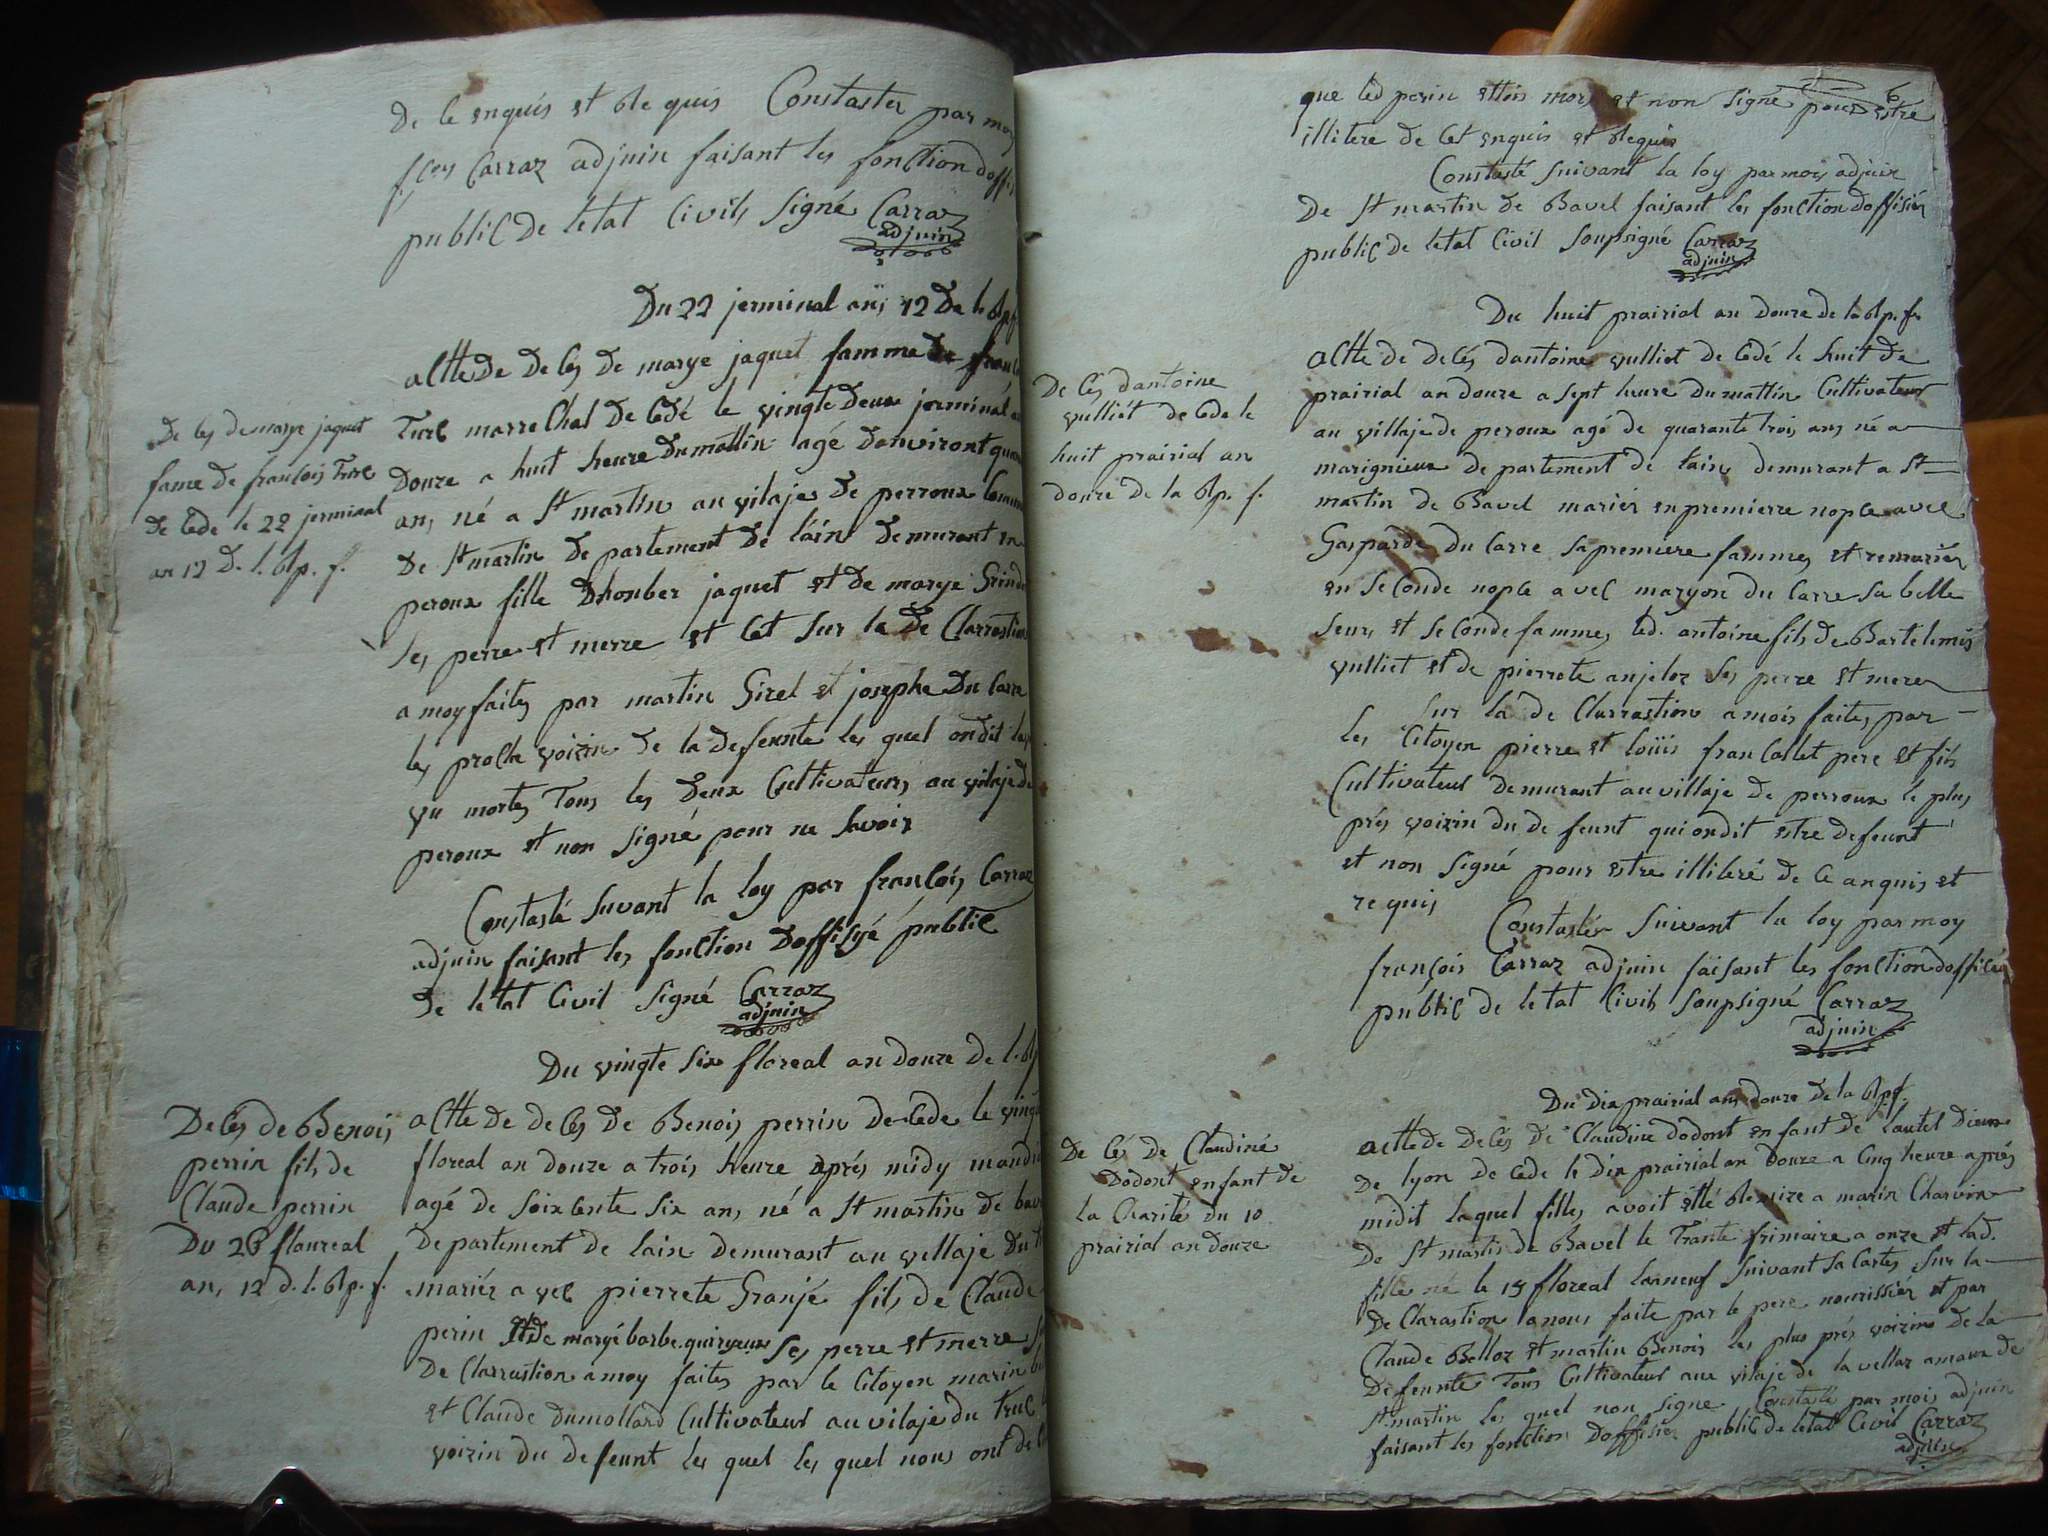 de le enquis et ble quis Constaster par moy
fçoy Carraz adjuin faisant les fonction doffis
public de letat Civils signé Carraz
adjuin
Du 22 jerminal an 12 De l. blp. f.
De les de marye jaquet
fame de francois Turc
de cede le 22 jerminal
an 12 D. l. blp. f.
actte de de les de marye jaquet famme de fran
Turc marrechal de cedé le vingte deux jerminal
douze a huit heure du mattin agé denviront qua
ans né a St martin au vilaje de perroux Comm
de St martin de partement de lain demurant en
peroux fille Dhonber jaquet et de marye Grind
ses perre et merre et cet sur la de Clarrastion
a moy faites par martin Girel et josephe Du Carre
les proche voizin de la defeunte les quel on dit la
vu mortes Tous les deux Cultivateurs au vilaje de
peroux et non signé pour ne savoir
Constasté suvant la loy par françois Carraz
adjuin faisant les fonction doffisyé public
de letat Civil signé Carraz
adjuin
Du vingte six floreal an douze de l. blp
De les de Benois
perrin fils de
Claude perrin
Du 26 floureal
an, 12 d. l. blp. f.
actte de de les de Benois perrin de cede le vingt
floreal an douze a trois heure aprés midy
agé de soixente six ans né a St martin de bav
departement de lain demurant au villaje du t
mariéz a vec pierrete Granjé fils de Claude
perin Et de maryé barbe ses perre et merre s
de Clarrastion a moy faites par le Citoyen marin
et Claude dumollard Cultivateur au vilaje du truc
voizin du defeunt les quel les quel nous ont de
6
que led perin ettois mors et non signé pour estre
illitere de cet enquis et blequis
Constasté suivant la loy par mois adjuin
De St martin de Bavel faisant les fonction doffisiér
public de letat Civil soupsigné Carraz
adjuin
Du huit prairial an douze de la blp. f.
De cés dantoine
vulliét de cede le
huit prairial an
douze de la blp. f.
actte de de cés dantoine vulliet de cedé le huit de
prairial an douze a sept heure du mattin Cultivateur
au villaje de peroux agé de quarante trois ans né a
marignieux de partement de lain demurant a St
martin de Bavel mariéz en premierre nopce avec
Gasparde du Carre sa premiere famme et remariéz
en seconde nopce a vec maryon du Carre sa belle
seur et seconde famme led. antoine fils de Bartelemis
vulliet et de pierrete anjeloz ses perre et mere
sur la de Clarrastion a mois faites par
les Citoyen pierre et loüis francallet pere et fils
Cultivateur demurant au villaje de perroux le plus
prés voizin du de feunt qui on dit estre defeunt
et non signé pour estre illiteré de ce anquis et
requis
Constaster suivant la loy par moy
françois Carraz adjuin faisant les fonction dofficiér
public de letat Civils soupsigné Carraz
adjuin
Du dix prairial an douze de la blp. f.
De cés de Claudiné
Dodont enfant de
la Charité du 10
prairial an douze
actte de de lés de Claudine dodont enfant de lautel dieux
de lyon de cede le dix prairial an douze a cinq heure aprés
midit laquel fille avoit etté blemize a marin Charvin
de St martin de Bavel le Trante frimaire a onze et lad.
fille né le 15 floreal lanneuf suivant sa Cartes sur la
de Clarastion a nous faite par le pere nourissiér et par
Claude Belloz et martin Benois les plus prés voizins de la
defeunte Tous Cultivateur aux vilaje de lavellaz amaux de
St martin les quel non signe Constasté par mois adjuin
faisant les fonction doffisiér public de letat Civil Carraz
adjuin